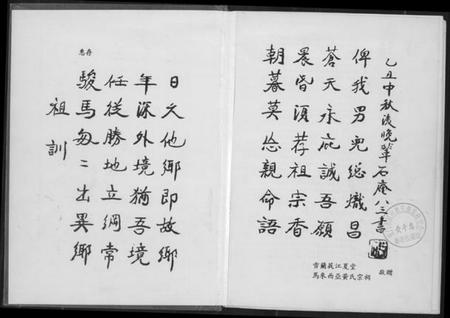 惠存
祖訓
駿馬匆〻出異鄉
任從勝地立綱常
年深外境猶吾境
日久他鄉即故鄉
朝暮莫忘親命語
晨昏須荐祖宗香
蒼天永庇誠吾願
俾我男兒總熾昌
乙丑中秋後晚輩石庵八三書
雪蘭莪江夏堂
馬來西亞黃氏宗祠
敬贈